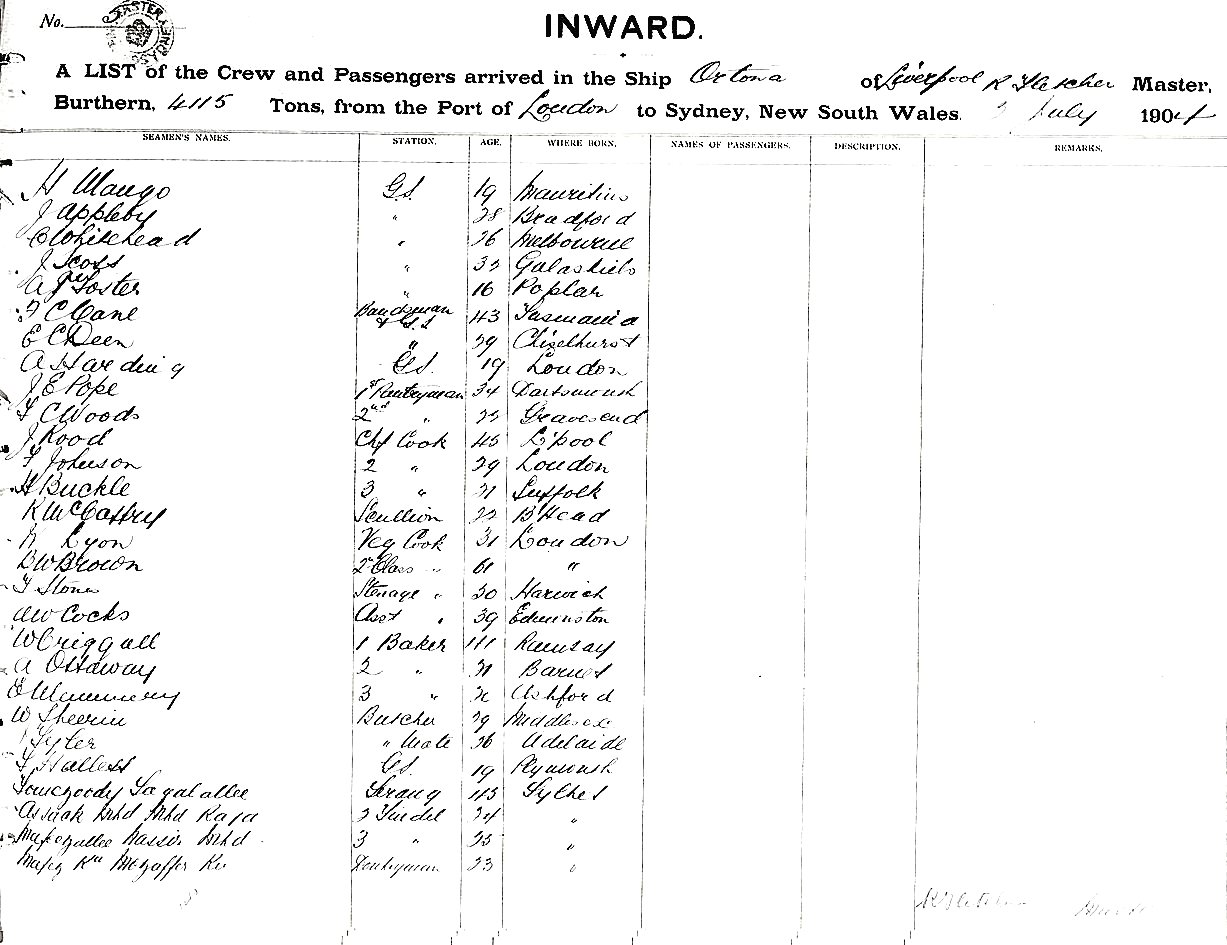 No.
INWARD.
A LIST of the Crew and Passengers arrived in the Ship Ortona of Liverpool R Fletcher Master,
Burthern, 4115 Tons, from the Port of London to Sydney, New South Wales. July 1904
SEAMEN'S NAMES. STATION. AGE. WHERE BORN. NAMES OF PASSENGERS. DESCRIPTION. REMARKS.
H Mango G.S. 19 Mauritius
J Appleby " 28 Bradford
C Whitehead " 26 Melbourne
J Scott " 32 Galashiels
A J Foster " 16 Poplar
F C Cane Bandsman & G.S 43 Tasmania
E C Deen " 29 Chiselhurst
A Harding G.S. 19 London
J E Pope 1st Pantryman 34 Dartsmouth
F C Woods 2nd " 22 Gravesend
J Rood Chf Cook 45 L'pool
F Johnson 2 " 29 London
H Buckle 3 " 21 Suffolk
R McCaffry Scullion 22 B'Head
Lyon Veg Cook 31 London
Brown 2 Class " 61 "
F Stone Steerage " 30 Harwich
AW Cocks Asst " 39 Edminston
W Criggall 1 Baker Ramsay
A Ottaway 2 " 21 Barnet
3 " Ashford
W Sheerin Butcher 29 Middlesex
Tyler " Mate 26 Adelaide
F Hallett G.S. 19 Plymouth
Serang Sylhet
2 Tindel 24 "
3 " 25 "
23 "